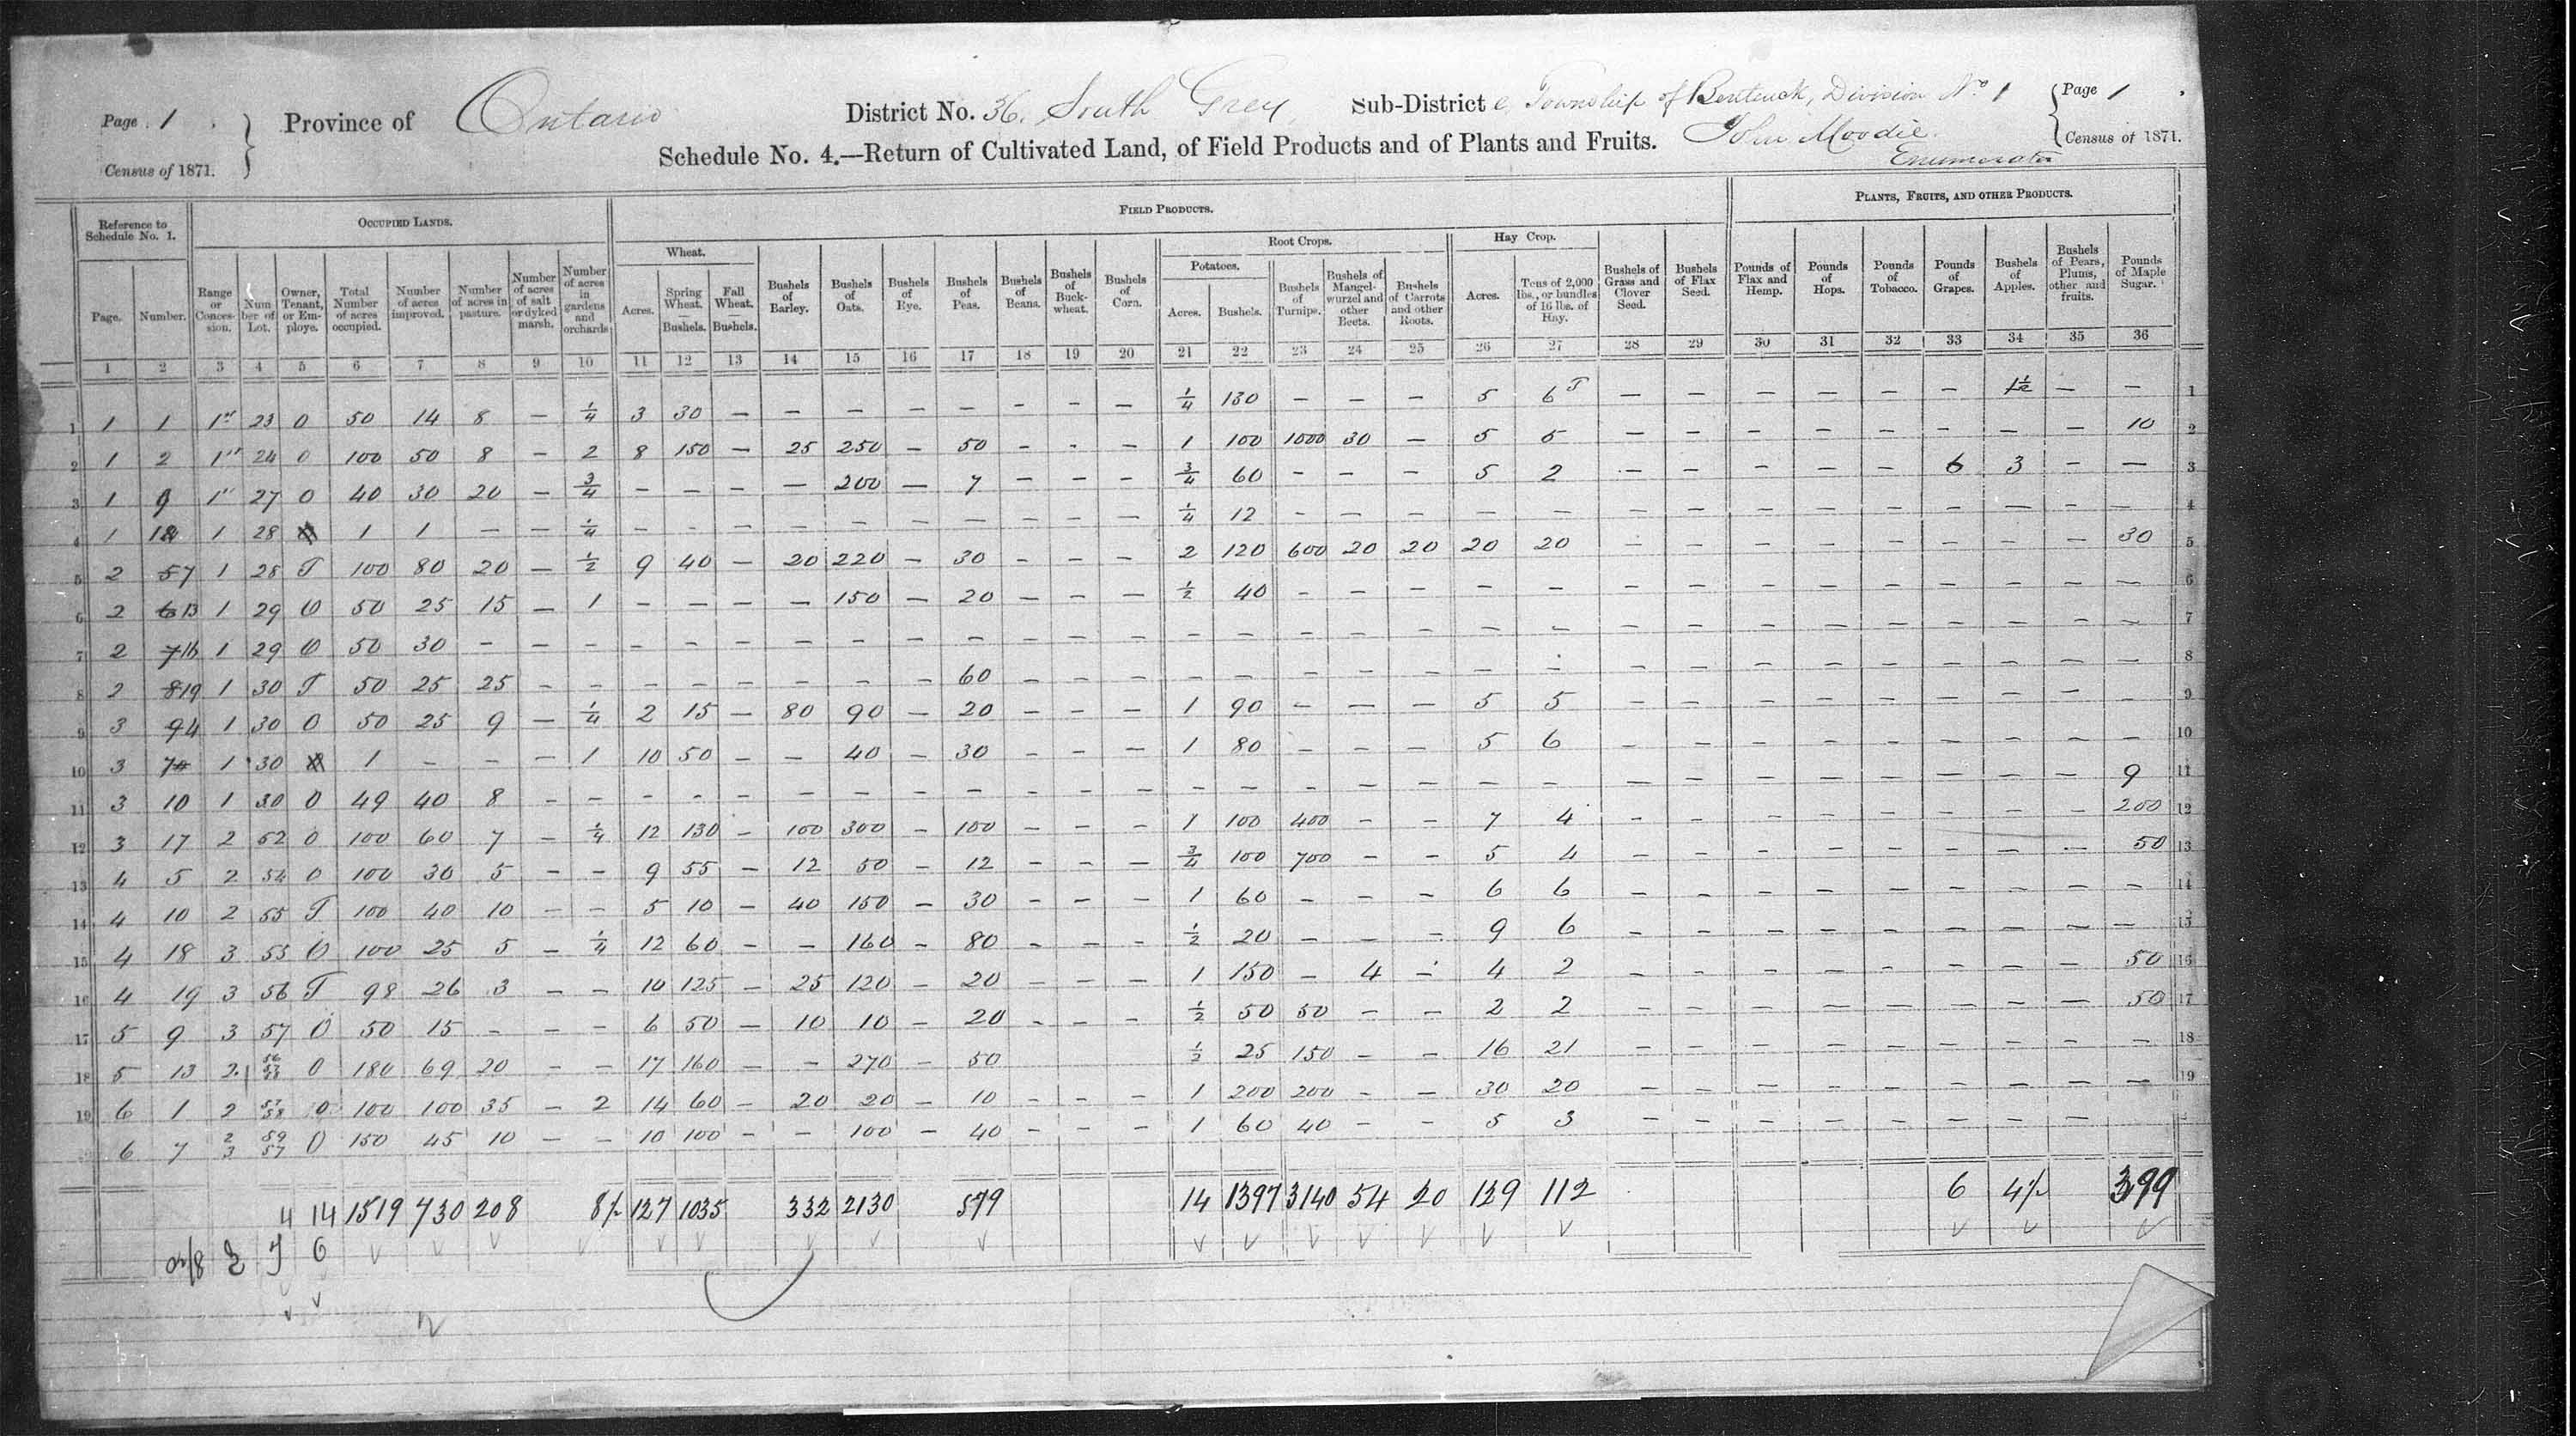 Page 1
Census of 1871.
Province of Ontario
District No. 36. South Grey, Sub-District e, Township of Bentinck, Division No 1
John Moodie.
Enumerator
Page 1
Census of 1871.
Schedule No. 4.—Return of Cultivated Land, of Field Products and of Plants and Fruits.
Reference to Schedule No. 1. | OCCUPIED LANDS. | FIELD PRODUCTS. | PLANTS, FRUITS, AND OTHER PRODUCTS.
Wheat. | Root Crops. | Potatoes. | Hay Crop.
Page. | Number. | Range or Concession. | Number of Lot. | Owner, Tenant, or Employe. | Total Number of acres occupied. | Number of acres improved. | Number of acres in pasture. | Number of acres of salt or dyked marsh. | Number of acres in gardens and orchards | Acres. | Spring Wheat.—Bushels. | Fall Wheat.—Bushels. | Bushels of Barley. | Bushels of Oats. | Bushels of Rye. | Bushels of Peas. | Bushels of Beans. | Bushels of Buckwheat. | Bushels of Corn. | Acres. | Bushels. | Bushels of Turnips. | Bushels of Mangel-wurzel and other Beets. | Bushels of Carrots and other Roots. | Acres. | Tons of 2,000 lbs., or bundles of 16 lbs. of Hay. | Bushels of Grass and Clover Seed. | Bushels of Flax Seed. | Pounds of Flax and Hemp. | Pounds of Hops. | Pounds of Tobacco. | Pounds of Grapes. | Bushels of Apples. | Bushels of Pears, Plums, other and fruits. | Pounds of Maple Sugar.
1 2 3 4 5 6 7 8 9 10 11 12 13 14 15 16 17 18 19 20 21 22 23 24 25 26 27 28 29 30 31 32 33 34 35 36
1 1 1 1st 23 O 50 14 8 — 1/4 3 30 — — — — — — — — 1/4 130 — — — 5 6 T — — — — — — 1½ — — 1
2 1 2 1" 24 O 100 50 8 — 2 8 150 — 25 250 — 50 — — — 1 100 1000 30 — 5 5 — — — — — — — — 10 2
3 1 9 1" 27 O 40 30 20 — 3/4 — — — — 200 — 7 — — — 3/4 60 — — — 5 2 — — — — — 6 3 — — 3
4 1 1 28 1 1 — — 1/4 — — — — — — — — — — 1/4 12 — — — — — — — — — — — — — — 4
5 2 57 1 28 T 100 80 20 — 1/2 9 40 — 20 220 — 30 — — — 2 120 600 20 20 20 20 — — — — — — — — 30 5
6 2 13 1 29 O 50 25 15 — 1 — — — — 150 — 20 — — — 1/2 40 — — — — — — — — — — — — — — 6
7 2 16 1 29 O 50 30 — — — — — — — — — — — — — — — — — — — — — — — — — — — — — 7
8 2 19 1 30 T 50 25 25 — — — — — — — — 60 — — — — — — — — — — — — — — — — — — — 8
9 3 94 1 30 O 50 25 9 — 1/4 2 15 — 80 90 — 20 — — — 1 90 — — — 5 5 — — — — — — — — — 9
10 3 1 30 1 — — — 1 10 50 — — 40 — 30 — — — 1 80 — — — 5 6 — — — — — — — — — 10
11 3 10 1 30 O 49 40 8 — — — — — — — — — — — — — — — — — — — — — — — — — — — 9 11
12 3 17 2 52 O 100 60 7 — 1/4 12 130 — 100 300 — 100 — — — 1 100 400 — — 7 4 — — — — — — — — 200 12
13 4 5 2 54 O 100 30 5 — — 9 55 — 12 50 — 12 — — — 3/4 100 700 — — 5 4 — — — — — — — — 50 13
14 4 10 2 55 T 100 40 10 — — 5 10 — 40 150 — 30 — — — 1 60 — — — 6 6 — — — — — — — — — 14
15 4 18 3 55 O 100 25 5 — 1/4 12 60 — — 160 — 80 — — — 1/2 20 — — — 9 6 — — — — — — — — — 15
16 4 19 3 56 T 98 26 3 — — 10 125 — 25 120 — 20 — — — 1 150 — 4 — 4 2 — — — — — — — — 50 16
17 5 9 3 57 O 50 15 — — — 6 50 — 10 10 — 20 — — — 1/2 50 50 — — 2 2 — — — — — — — — 50 17
18 5 13 2. O 180 69 20 — — 17 160 — — 270 — 50 1/2 25 150 — — 16 21 — — — — — — — — — 18
19 6 1 2 57 58 O 100 100 35 — 2 14 60 — 20 20 — 10 — — — 1 200 200 — — 30 20 — — — — — — — — — 19
6 7 2 3 59 57 O 150 45 10 — — 10 100 — — 100 — 40 — — — 1 60 40 — — 5 3 — — — — — — — —
4 14 1519 730 208 8½ 127 1035 332 2130 579 14 1397 3140 54 20 129 112 6 4½ 399
6